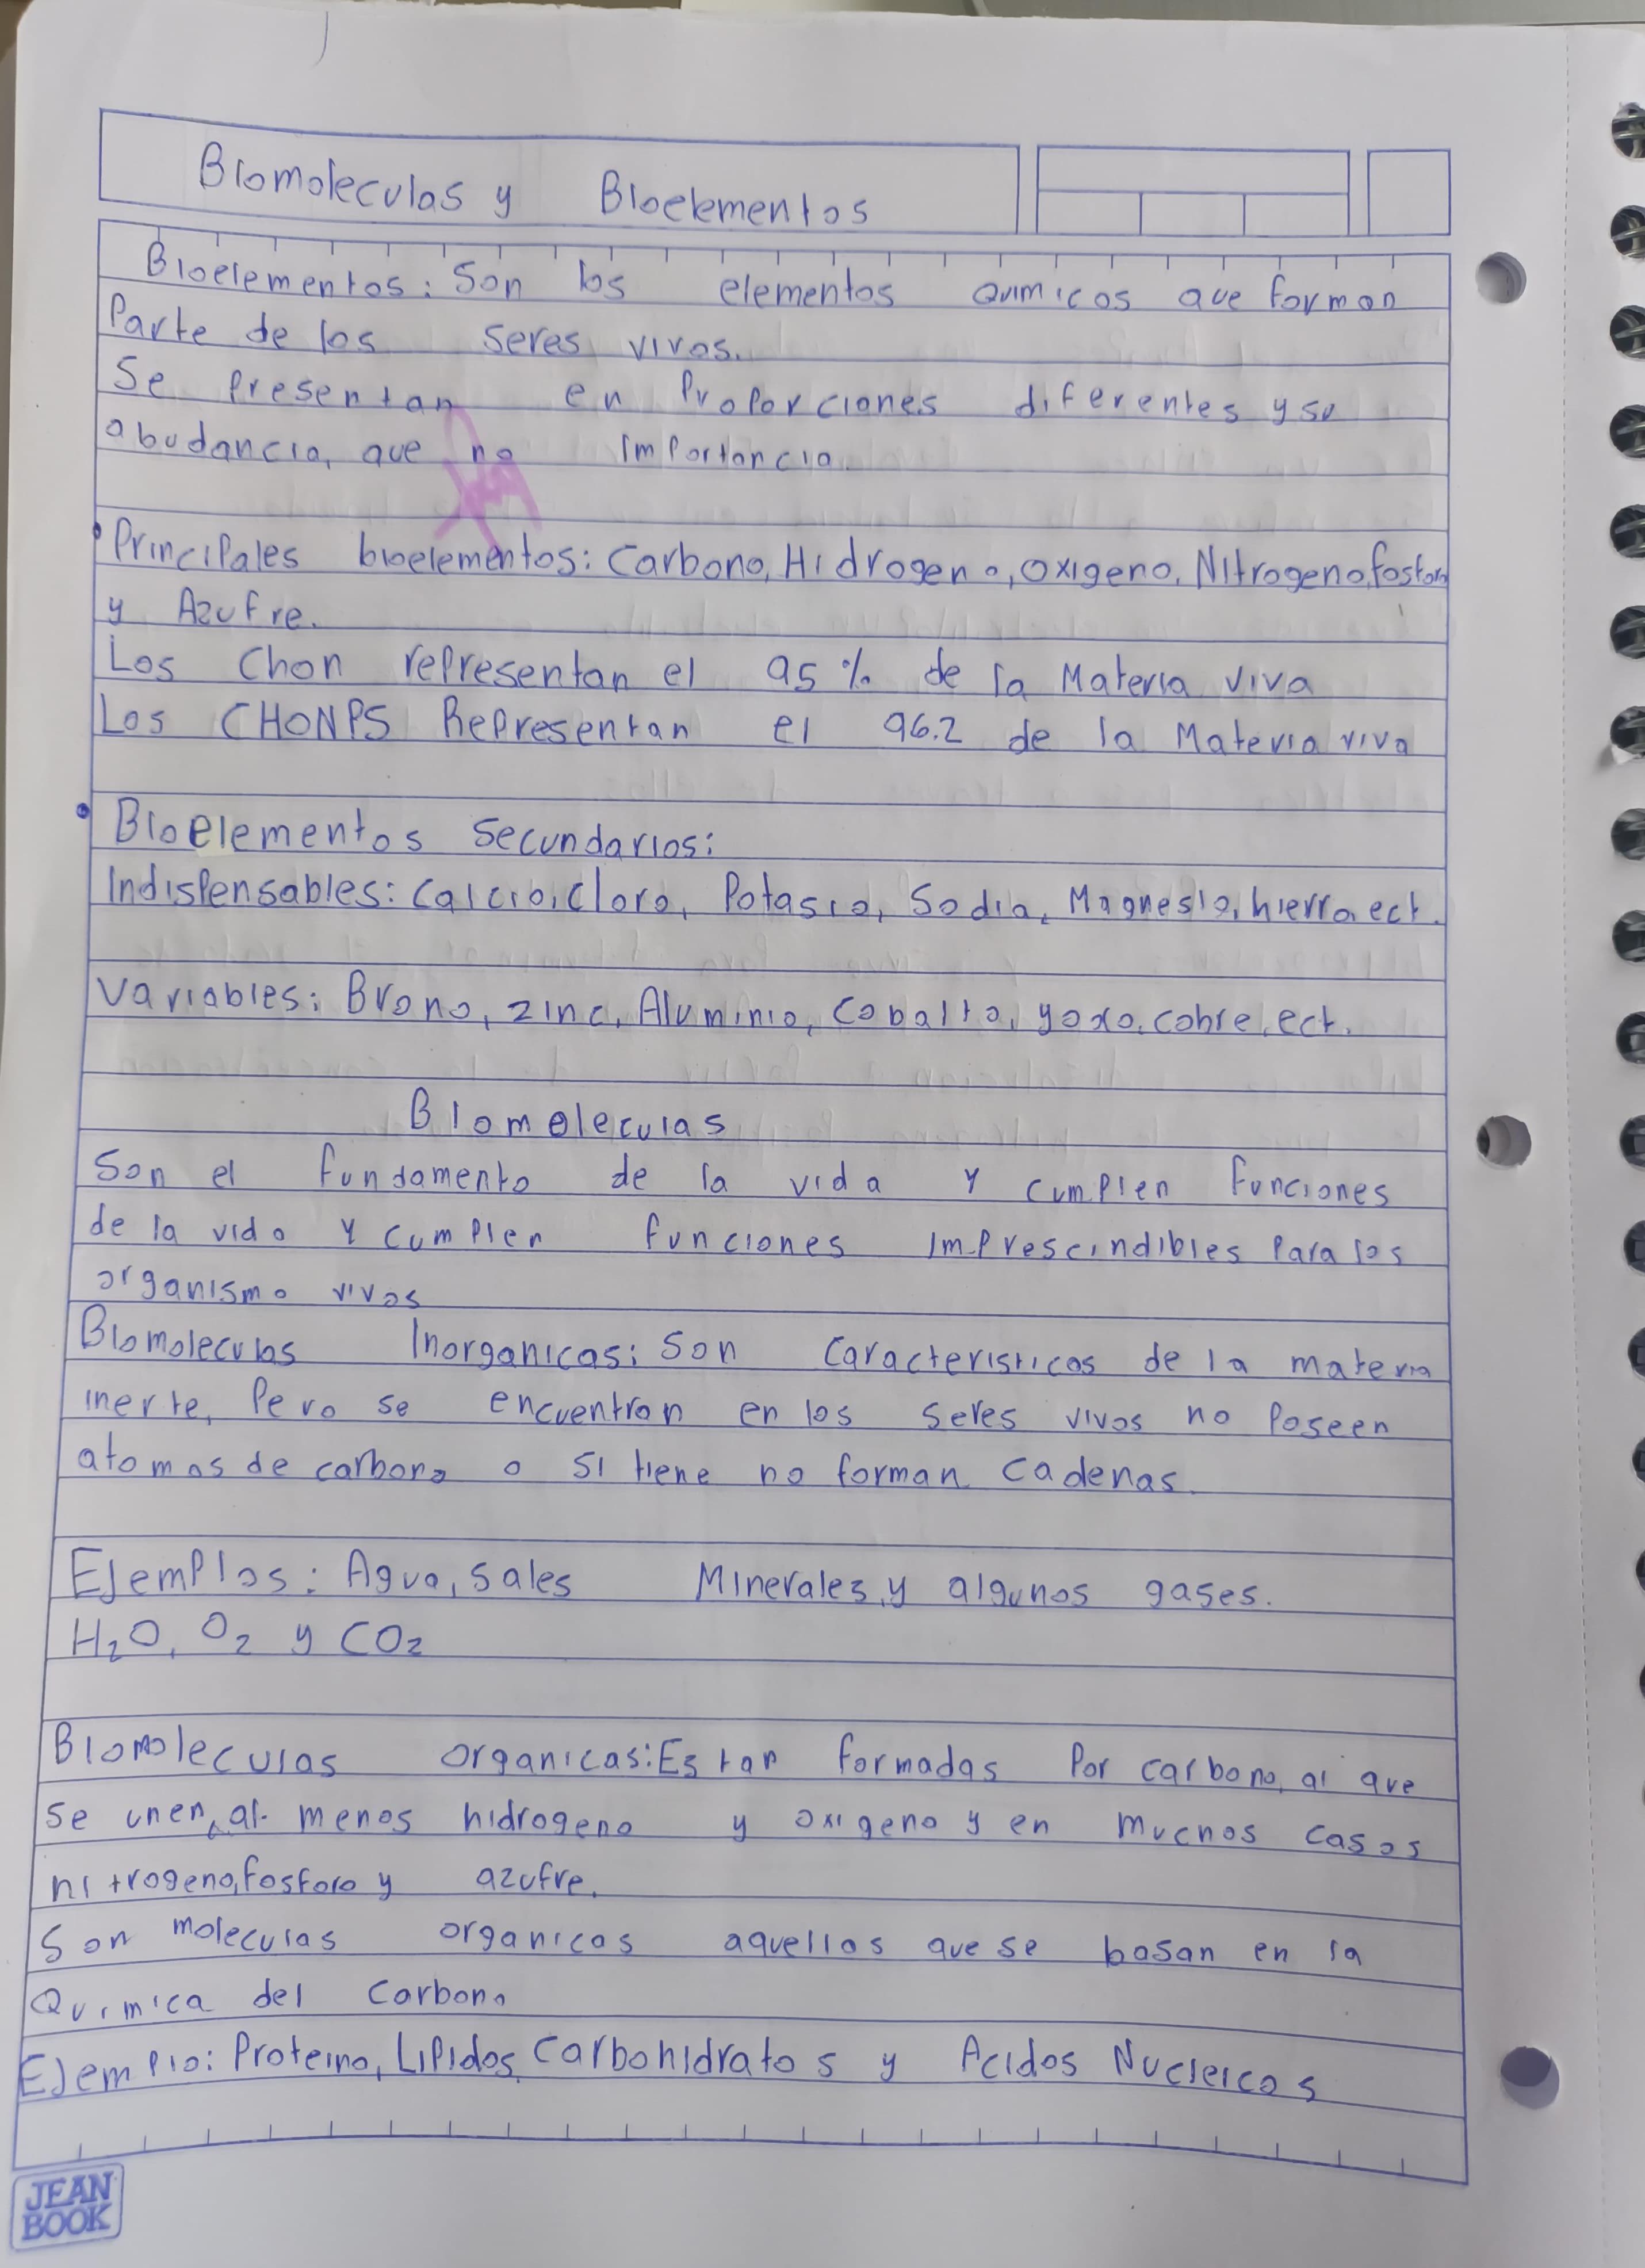 Biomoleculas y Bioelementos
Bioelementos: Son los elementos quimicos que forman
Parte de los seres vivos.
Se Presentan en Proporciones diferentes y su
abudancia, que no importancia.
Principales bioelementos: Carbono, Hidrogeno, oxigeno, Nitrogeno, fosforo
y Azufre.
Los Chon representan el 95% de la Materia viva
Los CHONPS Representan el 96.2 de la Materia viva
Bioelementos Secundarios:
Indispensables: Calcio, Cloro, Potasio, Sodio, Magnesio, hierro, ect.
Variables: Brono, zinc, Aluminio, Cobalto, yodo, cobre, ect.
Biomoleculas
Son el fundamento de la vida y cumplen funciones
de la vida y cumplen funciones imprescindibles Para los
organismo vivos
Biomoleculas Inorganicas: Son Caracteristicos de la materia
inerte, Pero se encuentran en los seres vivos no Poseen
atomos de carbono o si tiene no forman cadenas.
Ejemplos: Agua, Sales Minerales, y algunos gases.
H₂O, O₂ y CO₂
Biomoleculas organicas: Estan formadas Por carbono, al que
se unen, al menos hidrogeno y oxigeno y en muchos casos
nitrogeno, fosforo y azufre.
Son moleculas organicas aquellas que se basan en la
Quimica del Carbono
Ejemplo: Proteina, Lipidos, Carbohidratos y Acidos Nucleicos
JEAN
BOOK